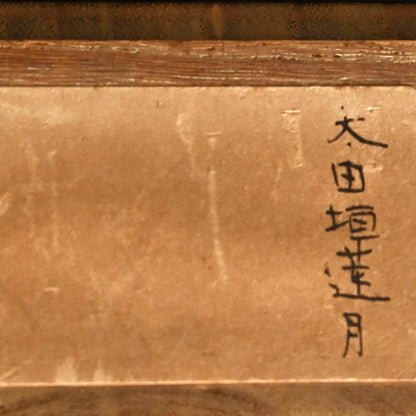 太田垣蓮月